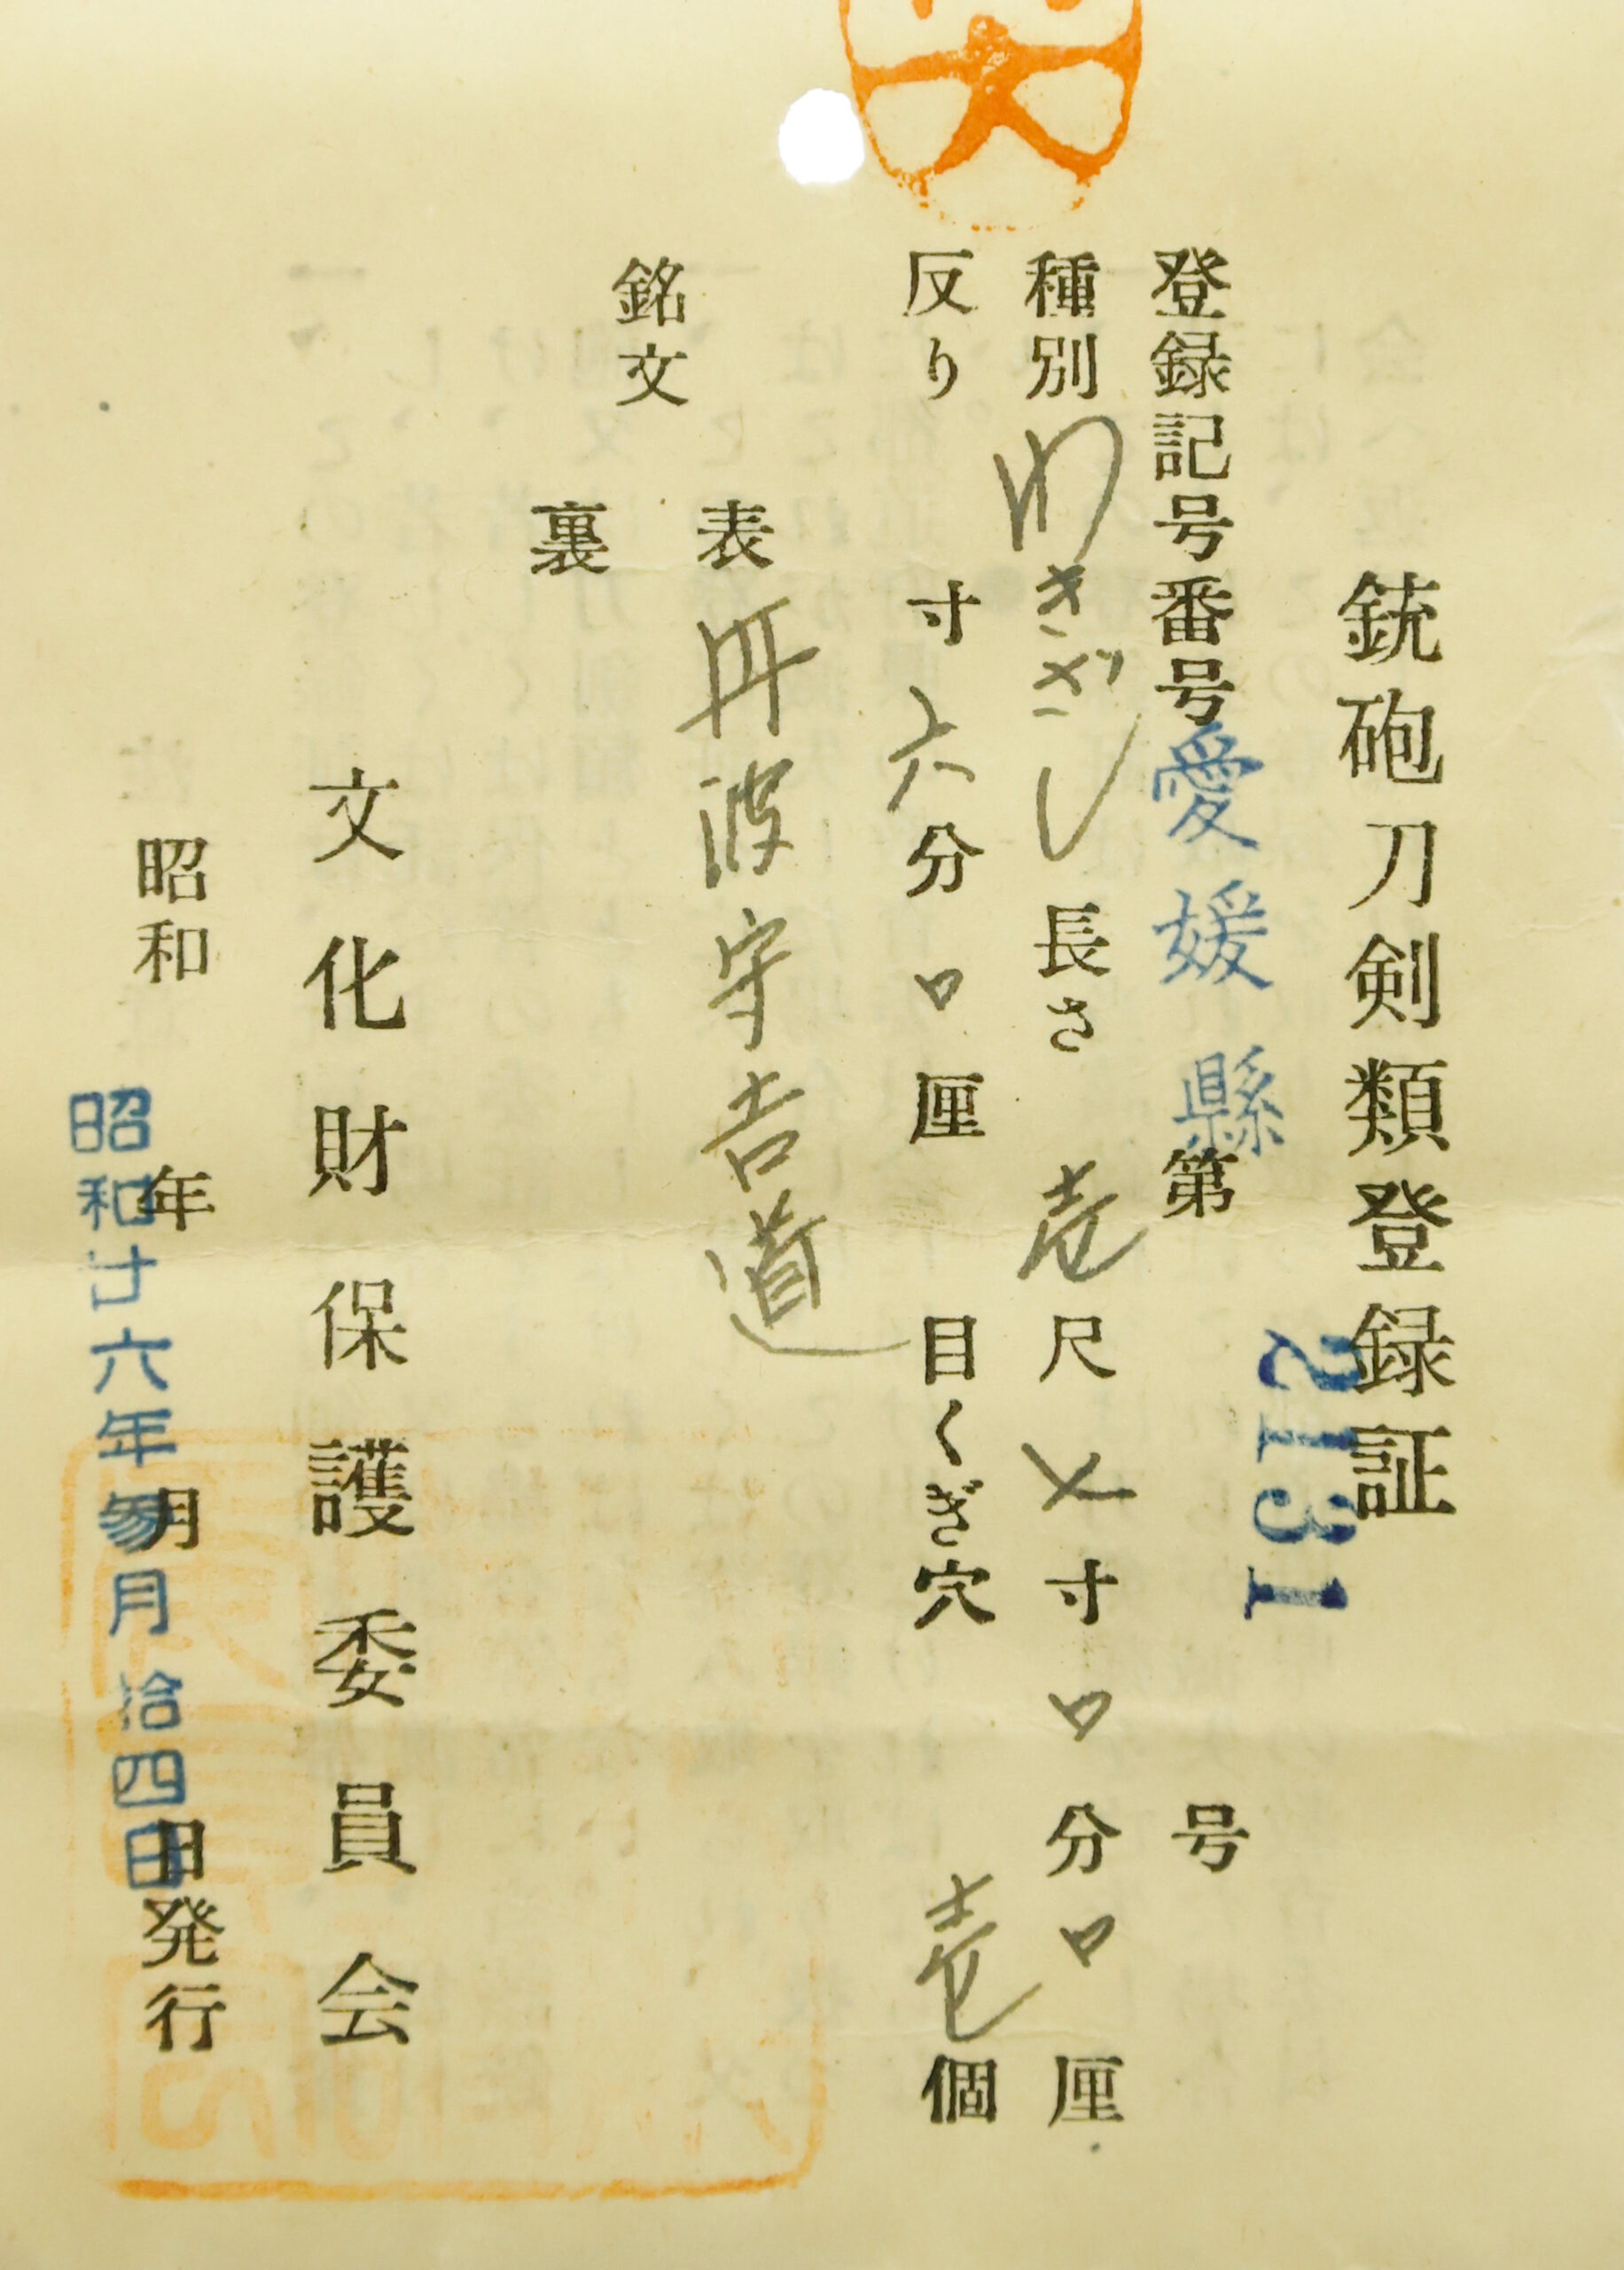 銃砲刀剣類登録証
登録記号番号愛媛縣第2131号
種別 わきざし 長さ 壱尺 寸〇分〇厘
反り 寸六分〇厘 目くぎ穴 壱個
銘文
表 丹波守吉道
裏
文化財保護委員会
昭和 年 月 日発行
昭和廿六年参月拾四日